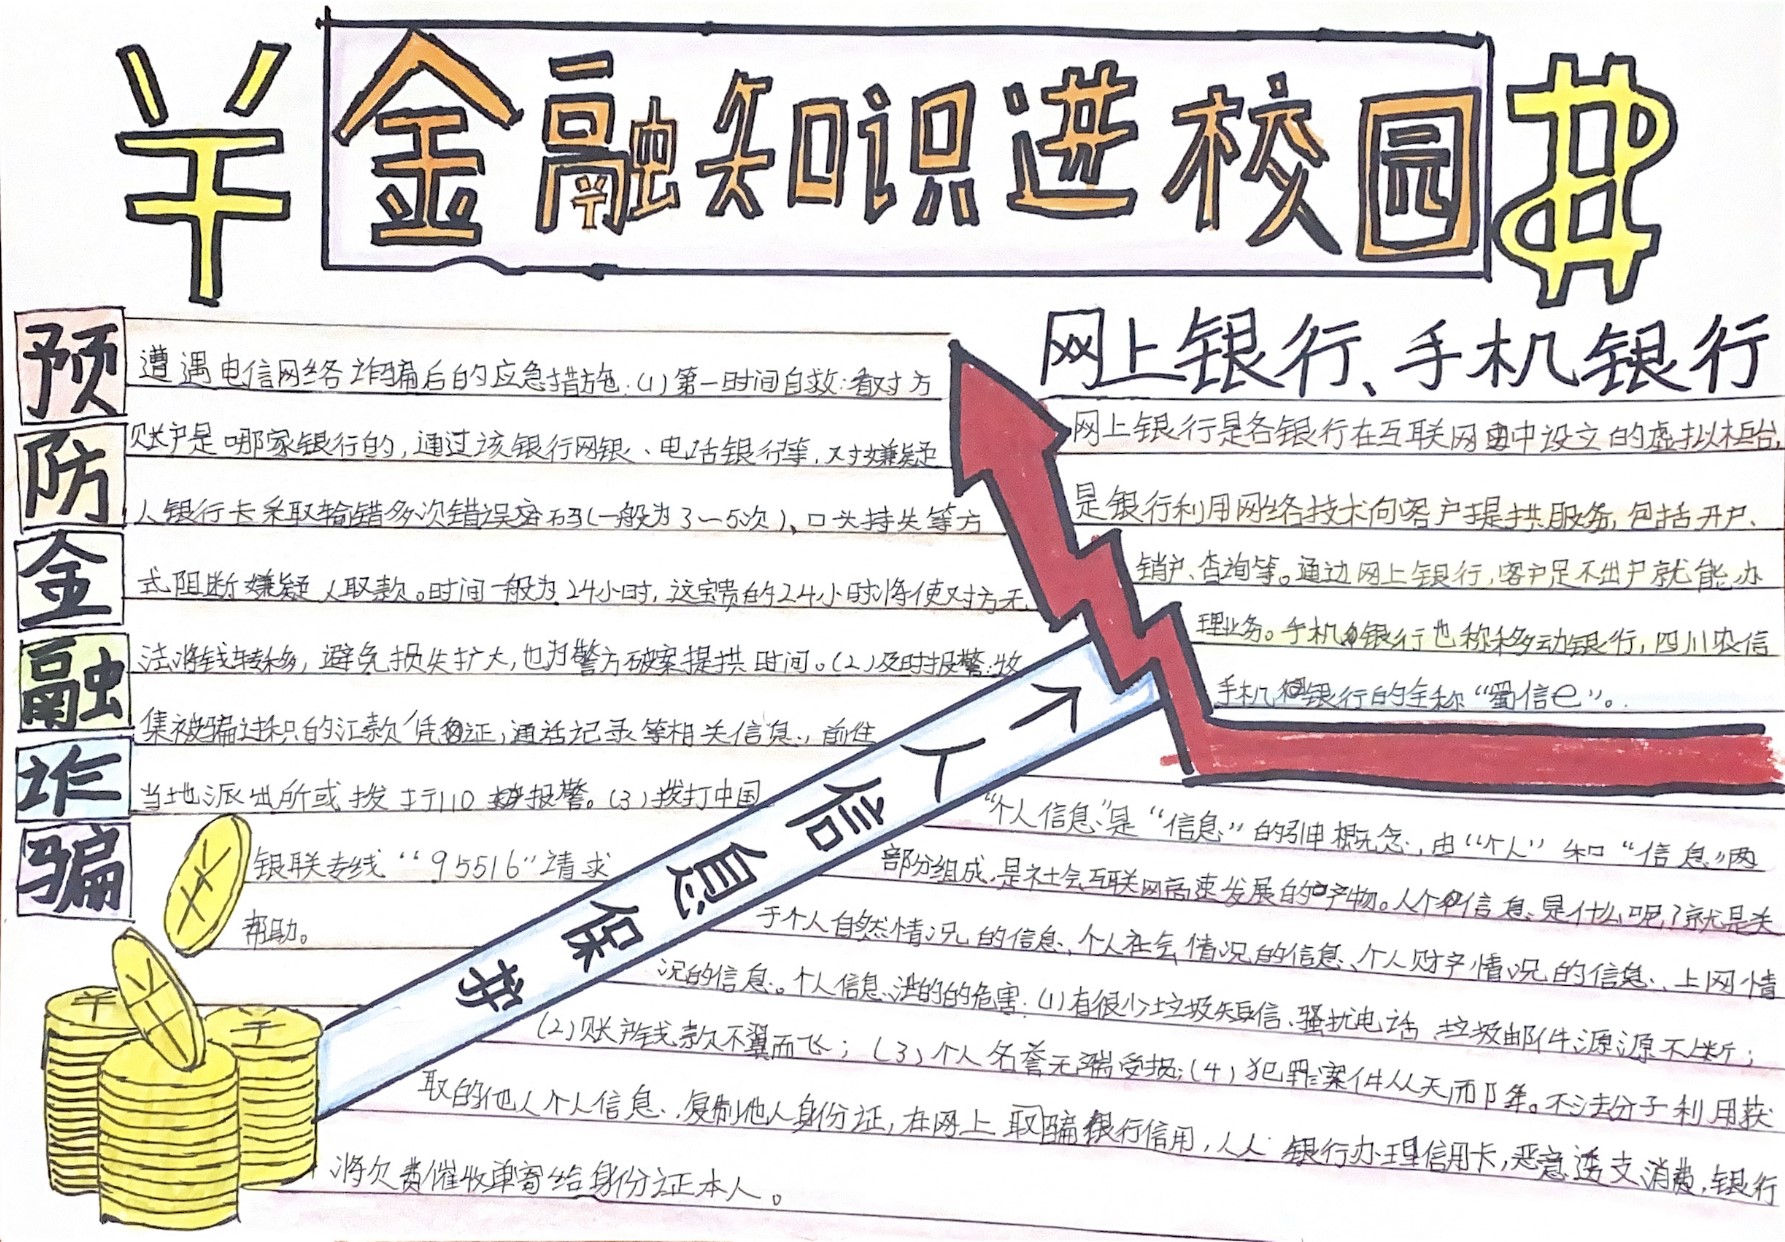 金融知识进校园
预防金融诈骗
遭遇电信网络诈骗后的应急措施:(1)第一时间自救:看对方
账户是哪家银行的,通过该银行网银、电话银行等,对嫌疑
人银行卡采取输错多次错误密码(一般为3一5次)、口头持失等方
式阻断嫌疑人取款。时间一般为24小时,这宝贵的24小时将使对方无
法将钱转移,避免损失扩大,也为警方破案提拱时间。(2)及时报警:收
集被骗过程的汇款凭证,通话记录等相关信息,前往
当地派出所或拨打110报警。(3)拨打中国
银联专线“95516”请求
帮助。
网上银行、手机银行
网上银行是各银行在互联网中设立的虚拟柜台,
是银行利用网络技术向客户提拱服务,包括开户、
销户、查询等。通过网上银行,客户足不出户就能办
理业务。手机银行也称移动银行,四川农信
手机银行的全称“蜀信e”。
个人信息保护
“个人信息”是“信息”的引申概念,由“个人”和“信息”两
部分组成,是社会互联网高速发展的产物。人个信息是什么呢?就是关
于个人自然情况的信息、个人社会情况的信息、个人财产情况的信息、上网情
况的信息。个人信息泄的的危害:(1)有很少垃圾短信、骚扰电话、垃圾邮件源源不断;
(2)账户钱款不翼而飞;(3)个人名誉无端受损;(4)犯罪案件从天而降。不法分子利用获
取的他人个人信息,复制他人身份证,在网上取骗银行信用,从银行办理信用卡,恶意透支消费,银行
将欠费催收单寄给身份证本人。